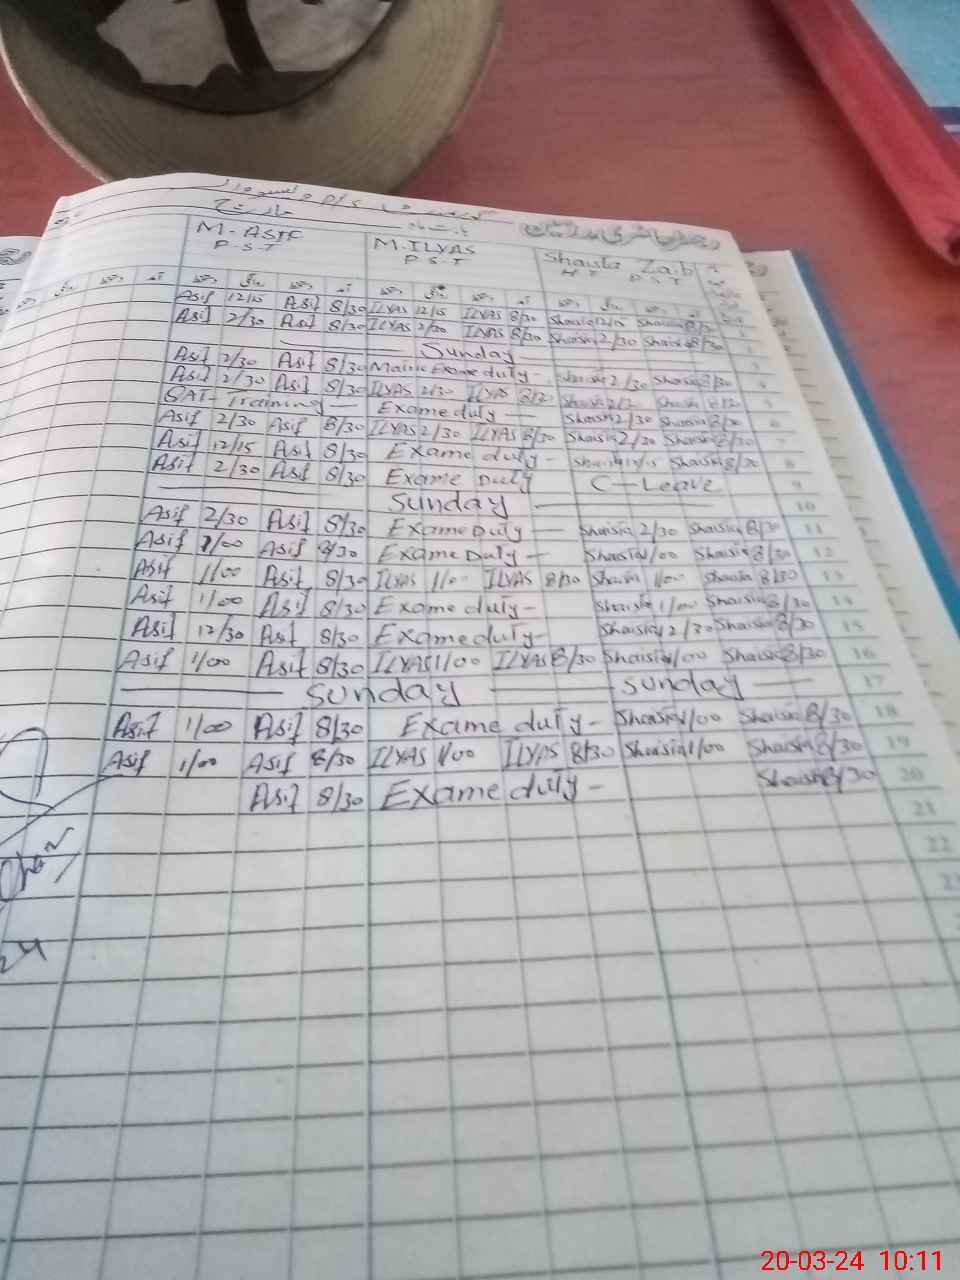 رجسٹر حاضری مدرسین
مارچ
M-ASIF M.ILYAS Shaista Zaib
P.S.T P.S.T H T P.S.T
Asif 12/15 Asif 8/30 ILYAS 12/15 ILYAS 8/30 Shaista 12/15 Shaista 8/30
Asif 2/30 Asif 8/30 ILYAS 2/30 ILYAS 8/30 Shaista 2/30 Shaista 8/30
Sunday
Asif 2/30 Asif 8/30 Exame duty - Shaista 2/30 Shaista 8/30 4
Asif 2/30 Asif 8/30 ILYAS 2/30 ILYAS 8/30 Shaista Shaista 5
SAT- Training Exame duty - Shaista 2/30 Shaista 8/30 6
Asif 2/30 Asif 8/30 ILYAS 2/30 ILYAS 8/30 Shaista 2/30 Shaista 8/30 7
Asif 12/15 Asif 8/30 Exame duty - Shaista 12/15 Shaista 8/30 8
Asif 2/30 Asif 8/30 Exame Duty C-Leave 9
Sunday 10
Asif 2/30 Asif 8/30 Exame Duty - Shaista 2/30 Shaista 8/30 11
Asif 1/00 Asif 8/30 Exame Duty - Shaista 1/00 Shaista 8/30 12
Asif 1/00 Asif 8/30 ILYAS 1/00 ILYAS 8/30 Shaista 1/00 Shaista 8/30 13
Asif 1/00 Asif 8/30 Exame duty - Shaista 1/00 Shaista 8/30 14
Asif 12/30 Asif 8/30 Exame duty - Shaista 12/30 Shaista 8/30 15
Asif 1/00 Asif 8/30 ILYAS 1/00 ILYAS 8/30 Shaista 1/00 Shaista 8/30 16
Sunday Sunday 17
Asif 1/00 Asif 8/30 Exame duty - Shaista 1/00 Shaista 8/30 18
Asif 1/00 Asif 8/30 ILYAS 1/00 ILYAS 8/30 Shaista 1/00 Shaista 8/30 19
Asif 8/30 Exame duty - Shaista 8/30 20
21
22
23
20-03-24 10:11